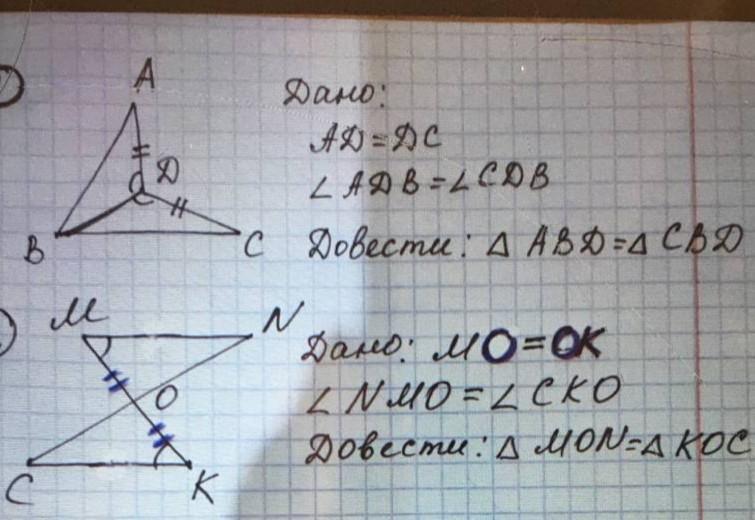 A
D
B
C
Дано:
AD=DC
∠ADB=∠CDB
Довести: △ABD=△CBD
M
N
O
C
K
Дано: MO=OK
∠NMO=∠CKO
Довести: △MON=△KOC